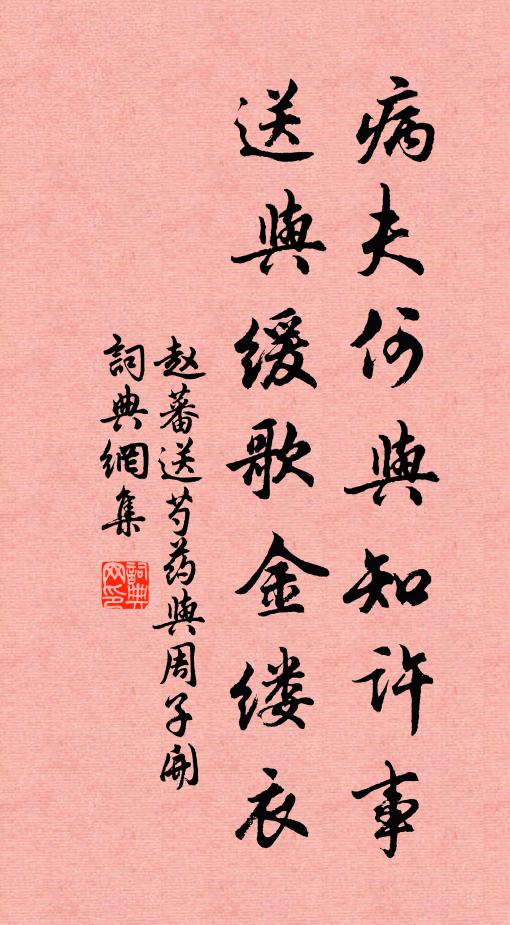 病夫何與知許事
送與缓歌金缕衣
赵蕃送芍药與周子開
詞典網集
詞典网印